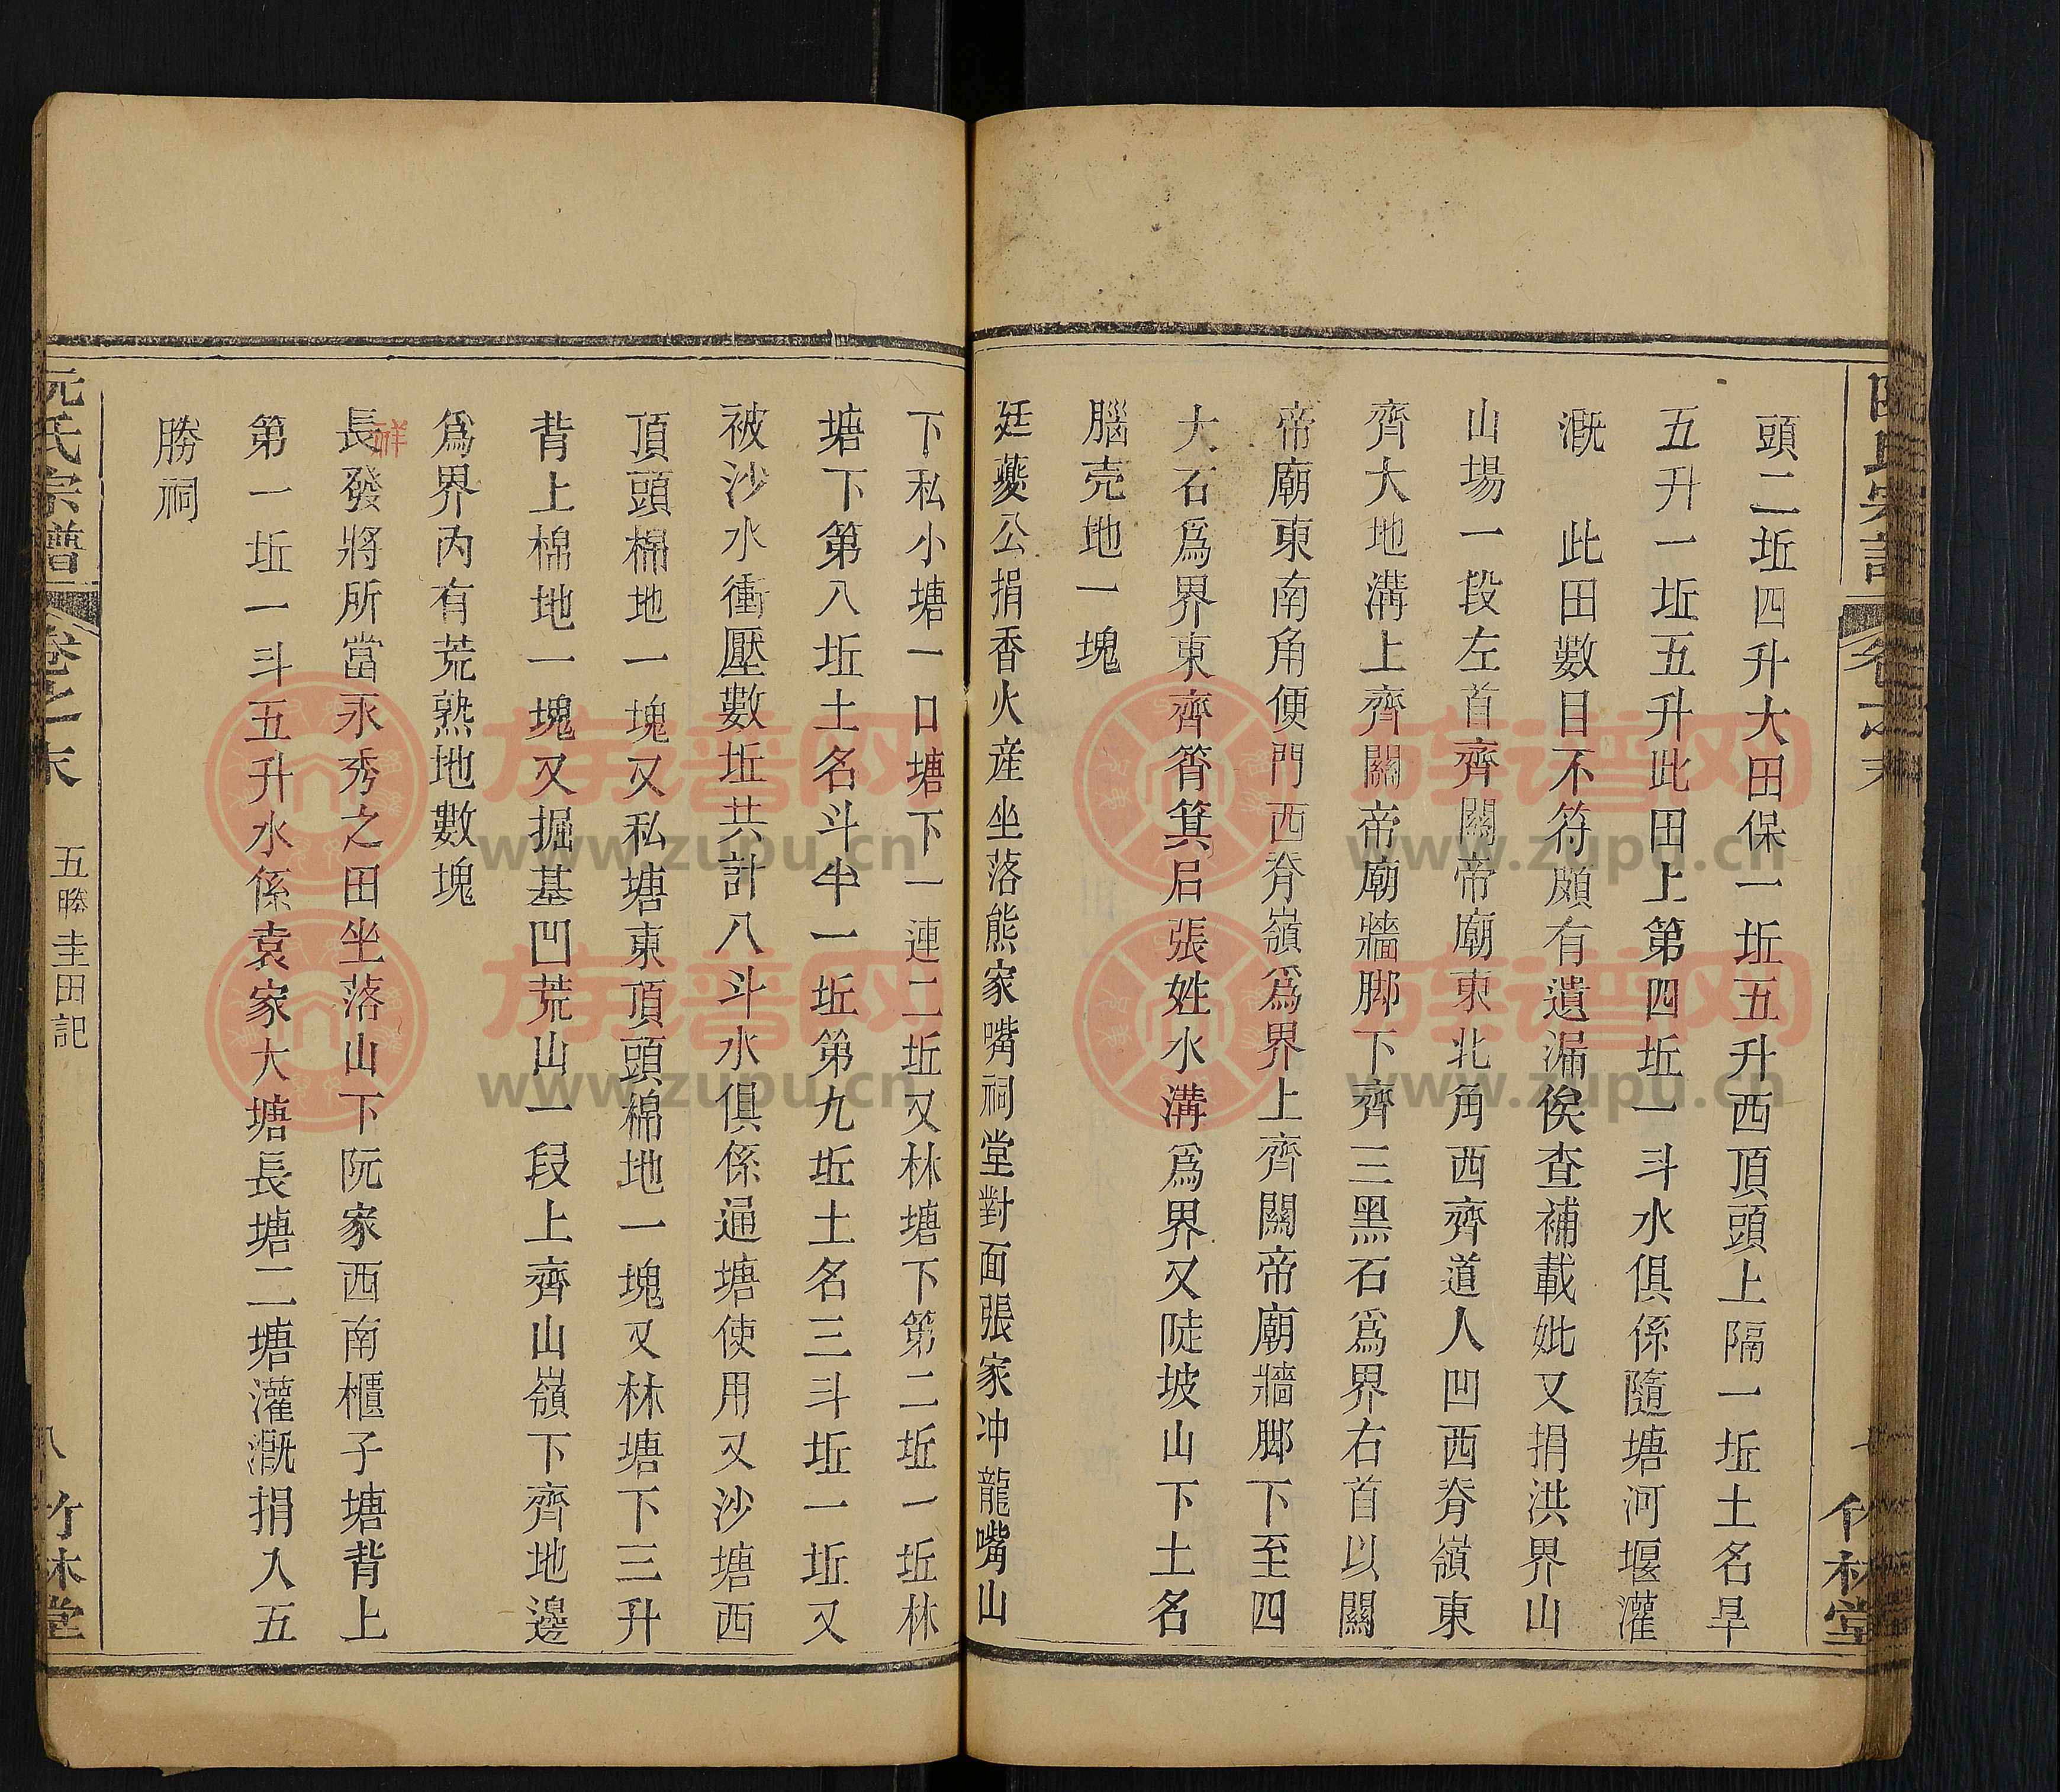 頭二坵四升大田保一坵五升西頂頭上隔一坵土名旱
五升一坵五升此田上第四坵一斗水俱係隨塘河堰灌
溉 此田數目不符頗有遺漏俟查補載妣又捐洪界山
山場一段左首齊關帝廟東北角西齊道人凹西脊嶺東
齊大地溝上齊關帝廟牆脚下齊三黑石爲界右首以關
帝廟東南角便門西脊嶺爲界上齊關帝廟牆脚下至四
大石爲界東齊筲箕启張姓水溝爲界又陡坡山下土名
腦売地一塊
廷夔公捐香火産坐落熊家嘴祠堂對面張家冲龍嘴山
竹林堂
下私小塘一口塘下一連二坵又林塘下第二坵一坵林
塘下第八坵土名斗牛一坵第九坵土名三斗坵一坵又
被沙水衝壓數坵共計八斗水俱係逥塘使用又沙塘西
頂頭棉地一塊又私塘東頂頭棉地一塊又林塘下三升
背上棉地一塊又掘基凹荒山一段上齊山嶺下齊地邊
爲界內有荒熟地數塊
長發將所當永秀之田坐落山下阮家西南櫃子塘背上
祥
第一坵一斗五升水係袁家大塘長塘二塘灌溉捐入五
勝祠
阮氏宗譜 卷之末 五勝圭田記 八 竹林堂
族谱网
www.zupu.cn
族谱网
www.zupu.cn
族谱网
www.zupu.cn
族谱网
www.zupu.cn